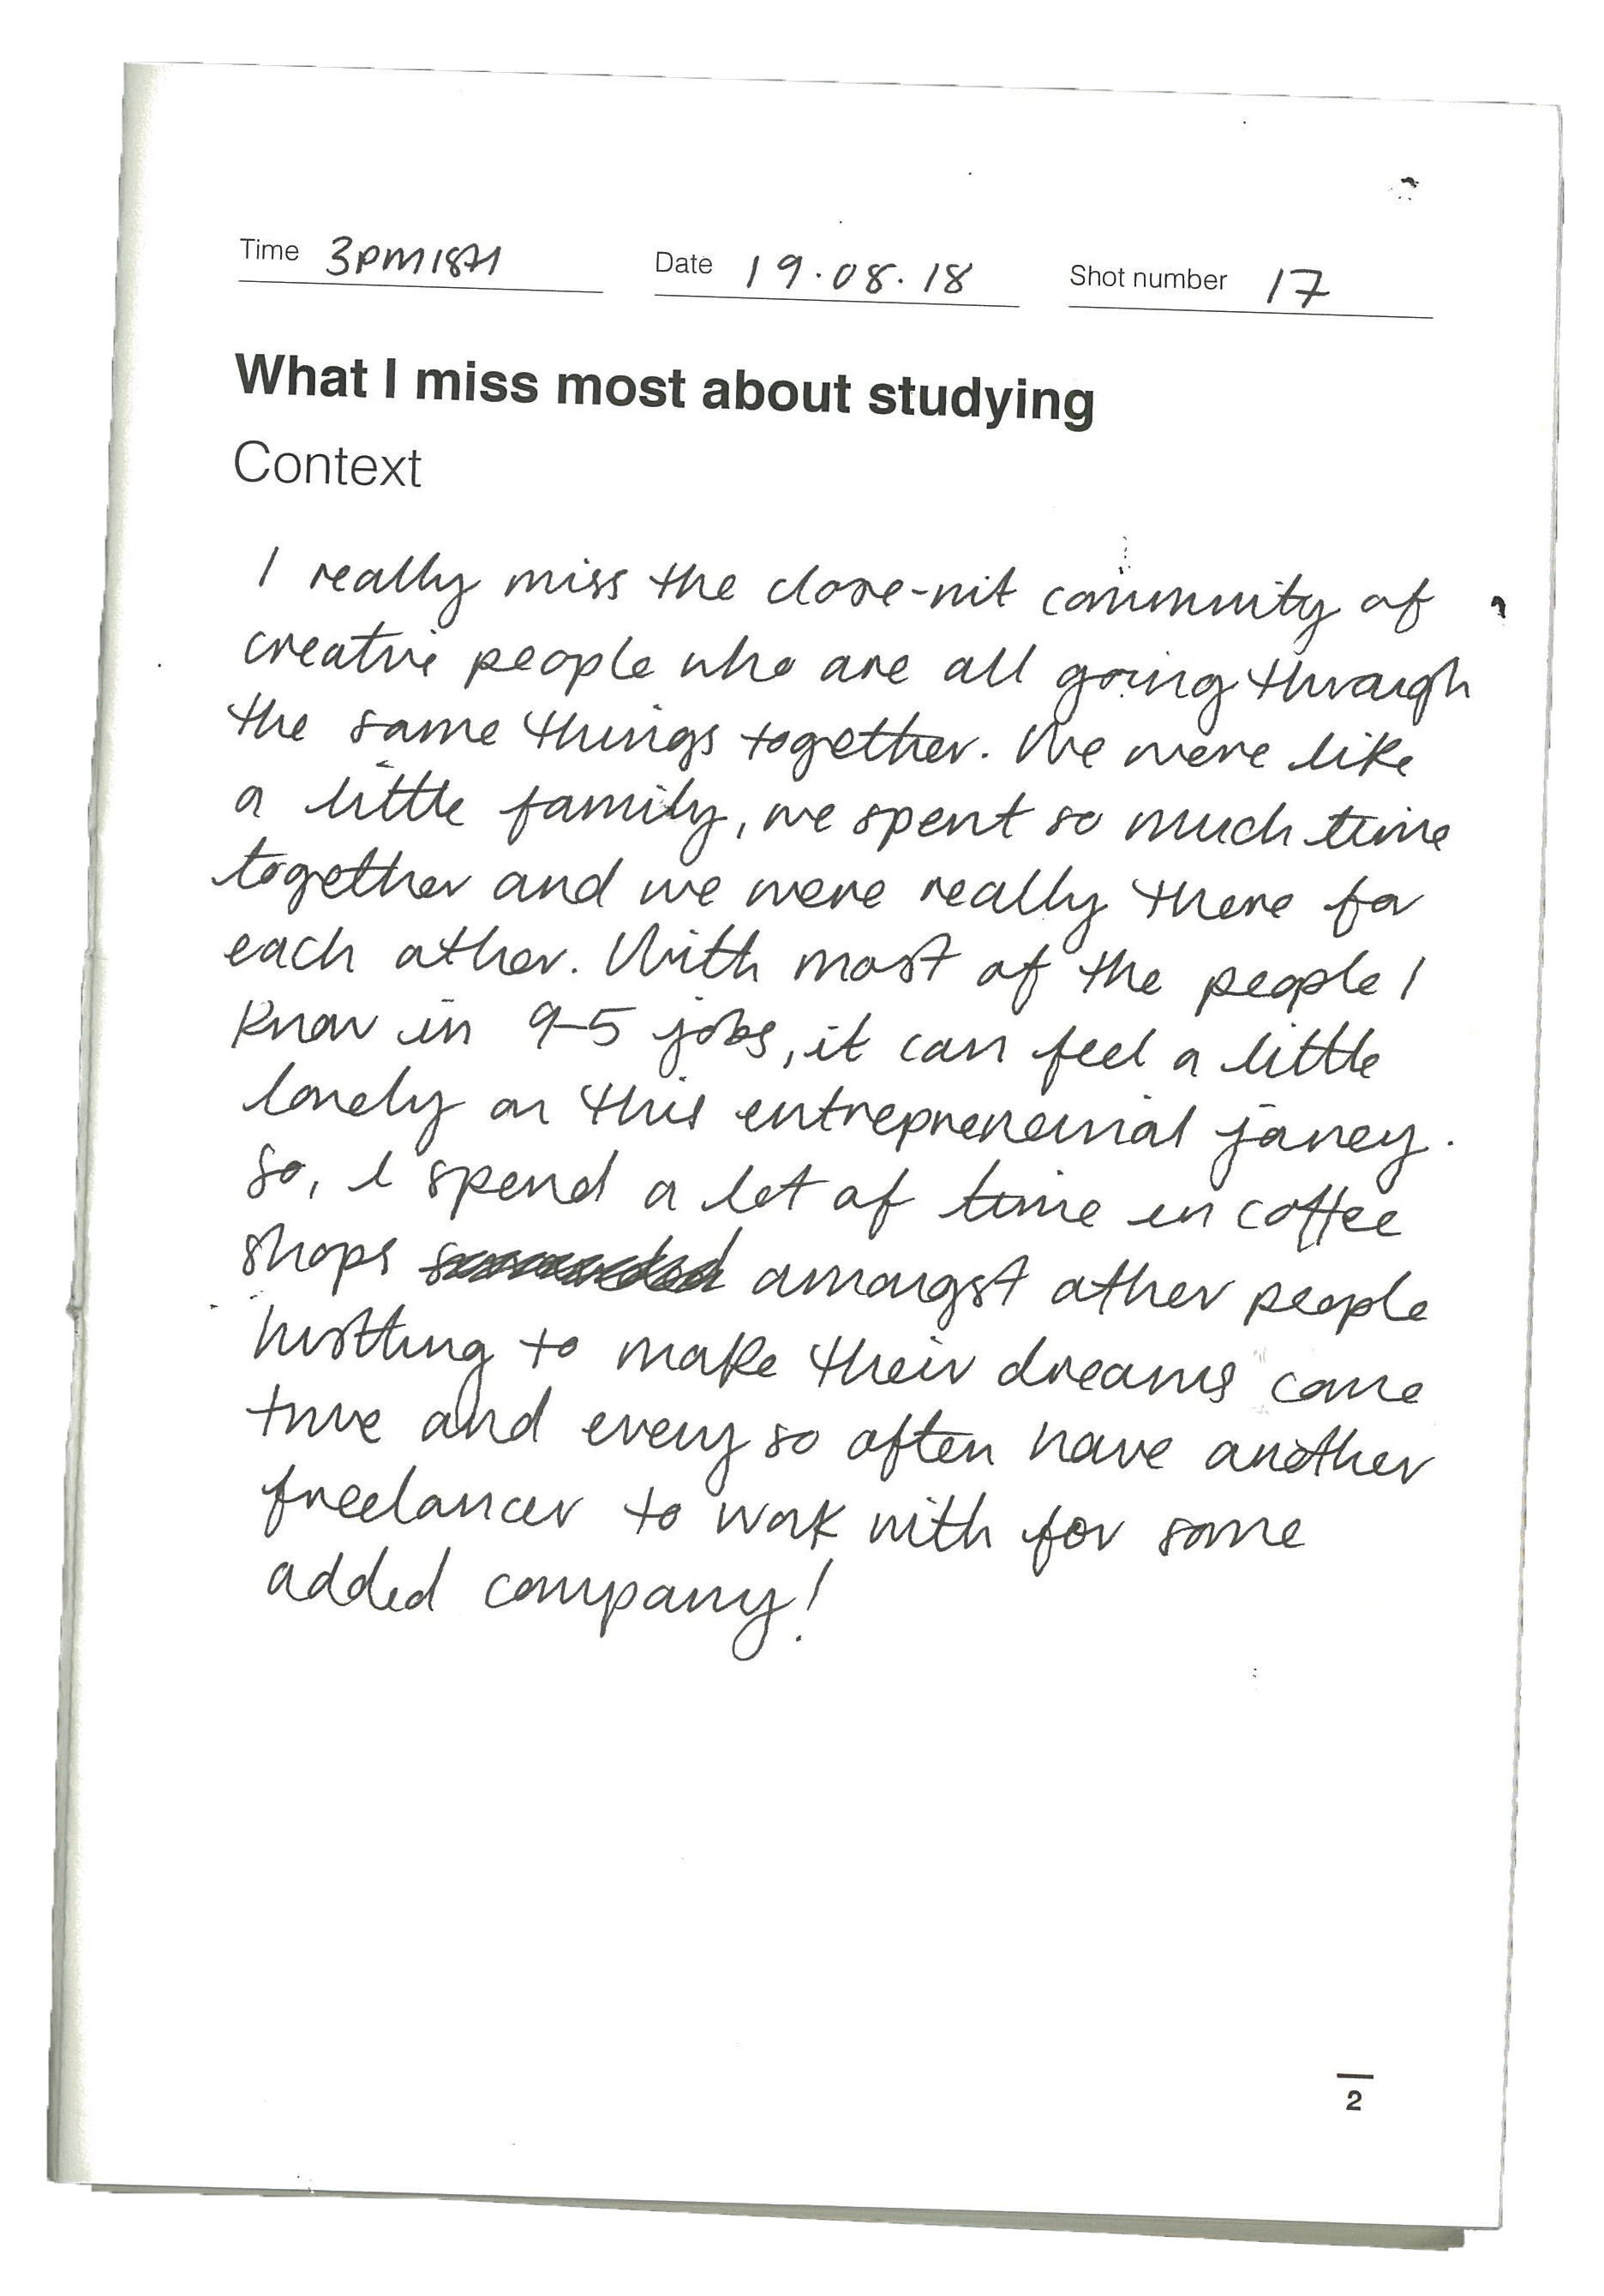 Time 3PMISH Date 19.08.18 Shot number 17
What I miss most about studying
Context
I really miss the close-nit community of
creative people who are all going through
the same things together. We were like
a little family, we spent so much time
together and we were really there for
each other. With most of the people I
know in 9-5 jobs, it can feel a little
lonely on this entrepreneurial joney.
So, I spend a lot of time in coffee
shops amongst other people
hustling to make their dreams come
true and every so often have another
freelancer to work with for some
added company!
2